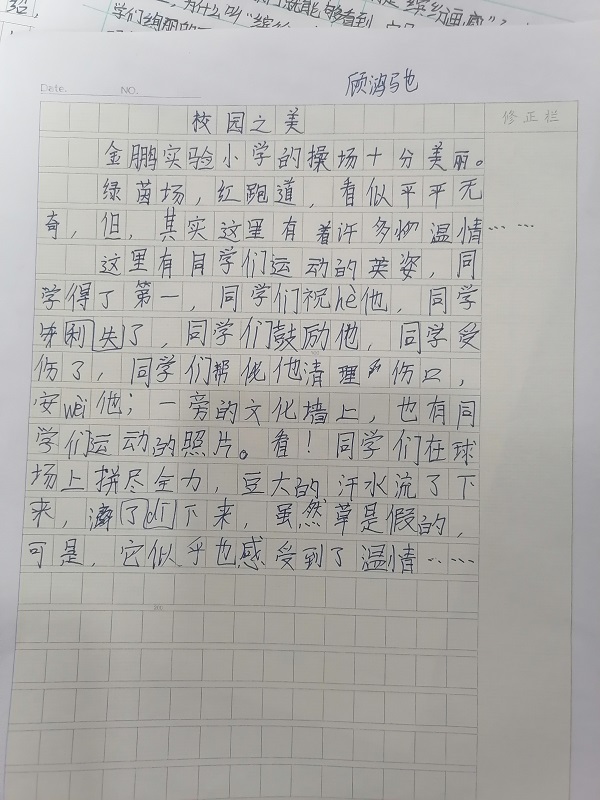 为什么叫“缤纷
够看到
缤纷画廊”
学们绚丽的
Date.
NO.
顾鸿驰
校园之美
修正栏
金鹏实验小学的操场十分美丽。
绿茵场，红跑道，看似平平无
奇，但，其实这里有着许多的温情……
这里有同学们运动的英姿，同
学得了第一，同学们祝hè他，同学
失利了，同学们鼓励他，同学受
伤了，同学们帮他清理伤口，
安wèi他；一旁的文化墙上，也有同
学们运动的照片。看！同学们在球
场上拼尽全力，豆大的汗水流了下
来，了下来，虽然草是假的，
可是，它似乎也感受到了温情……